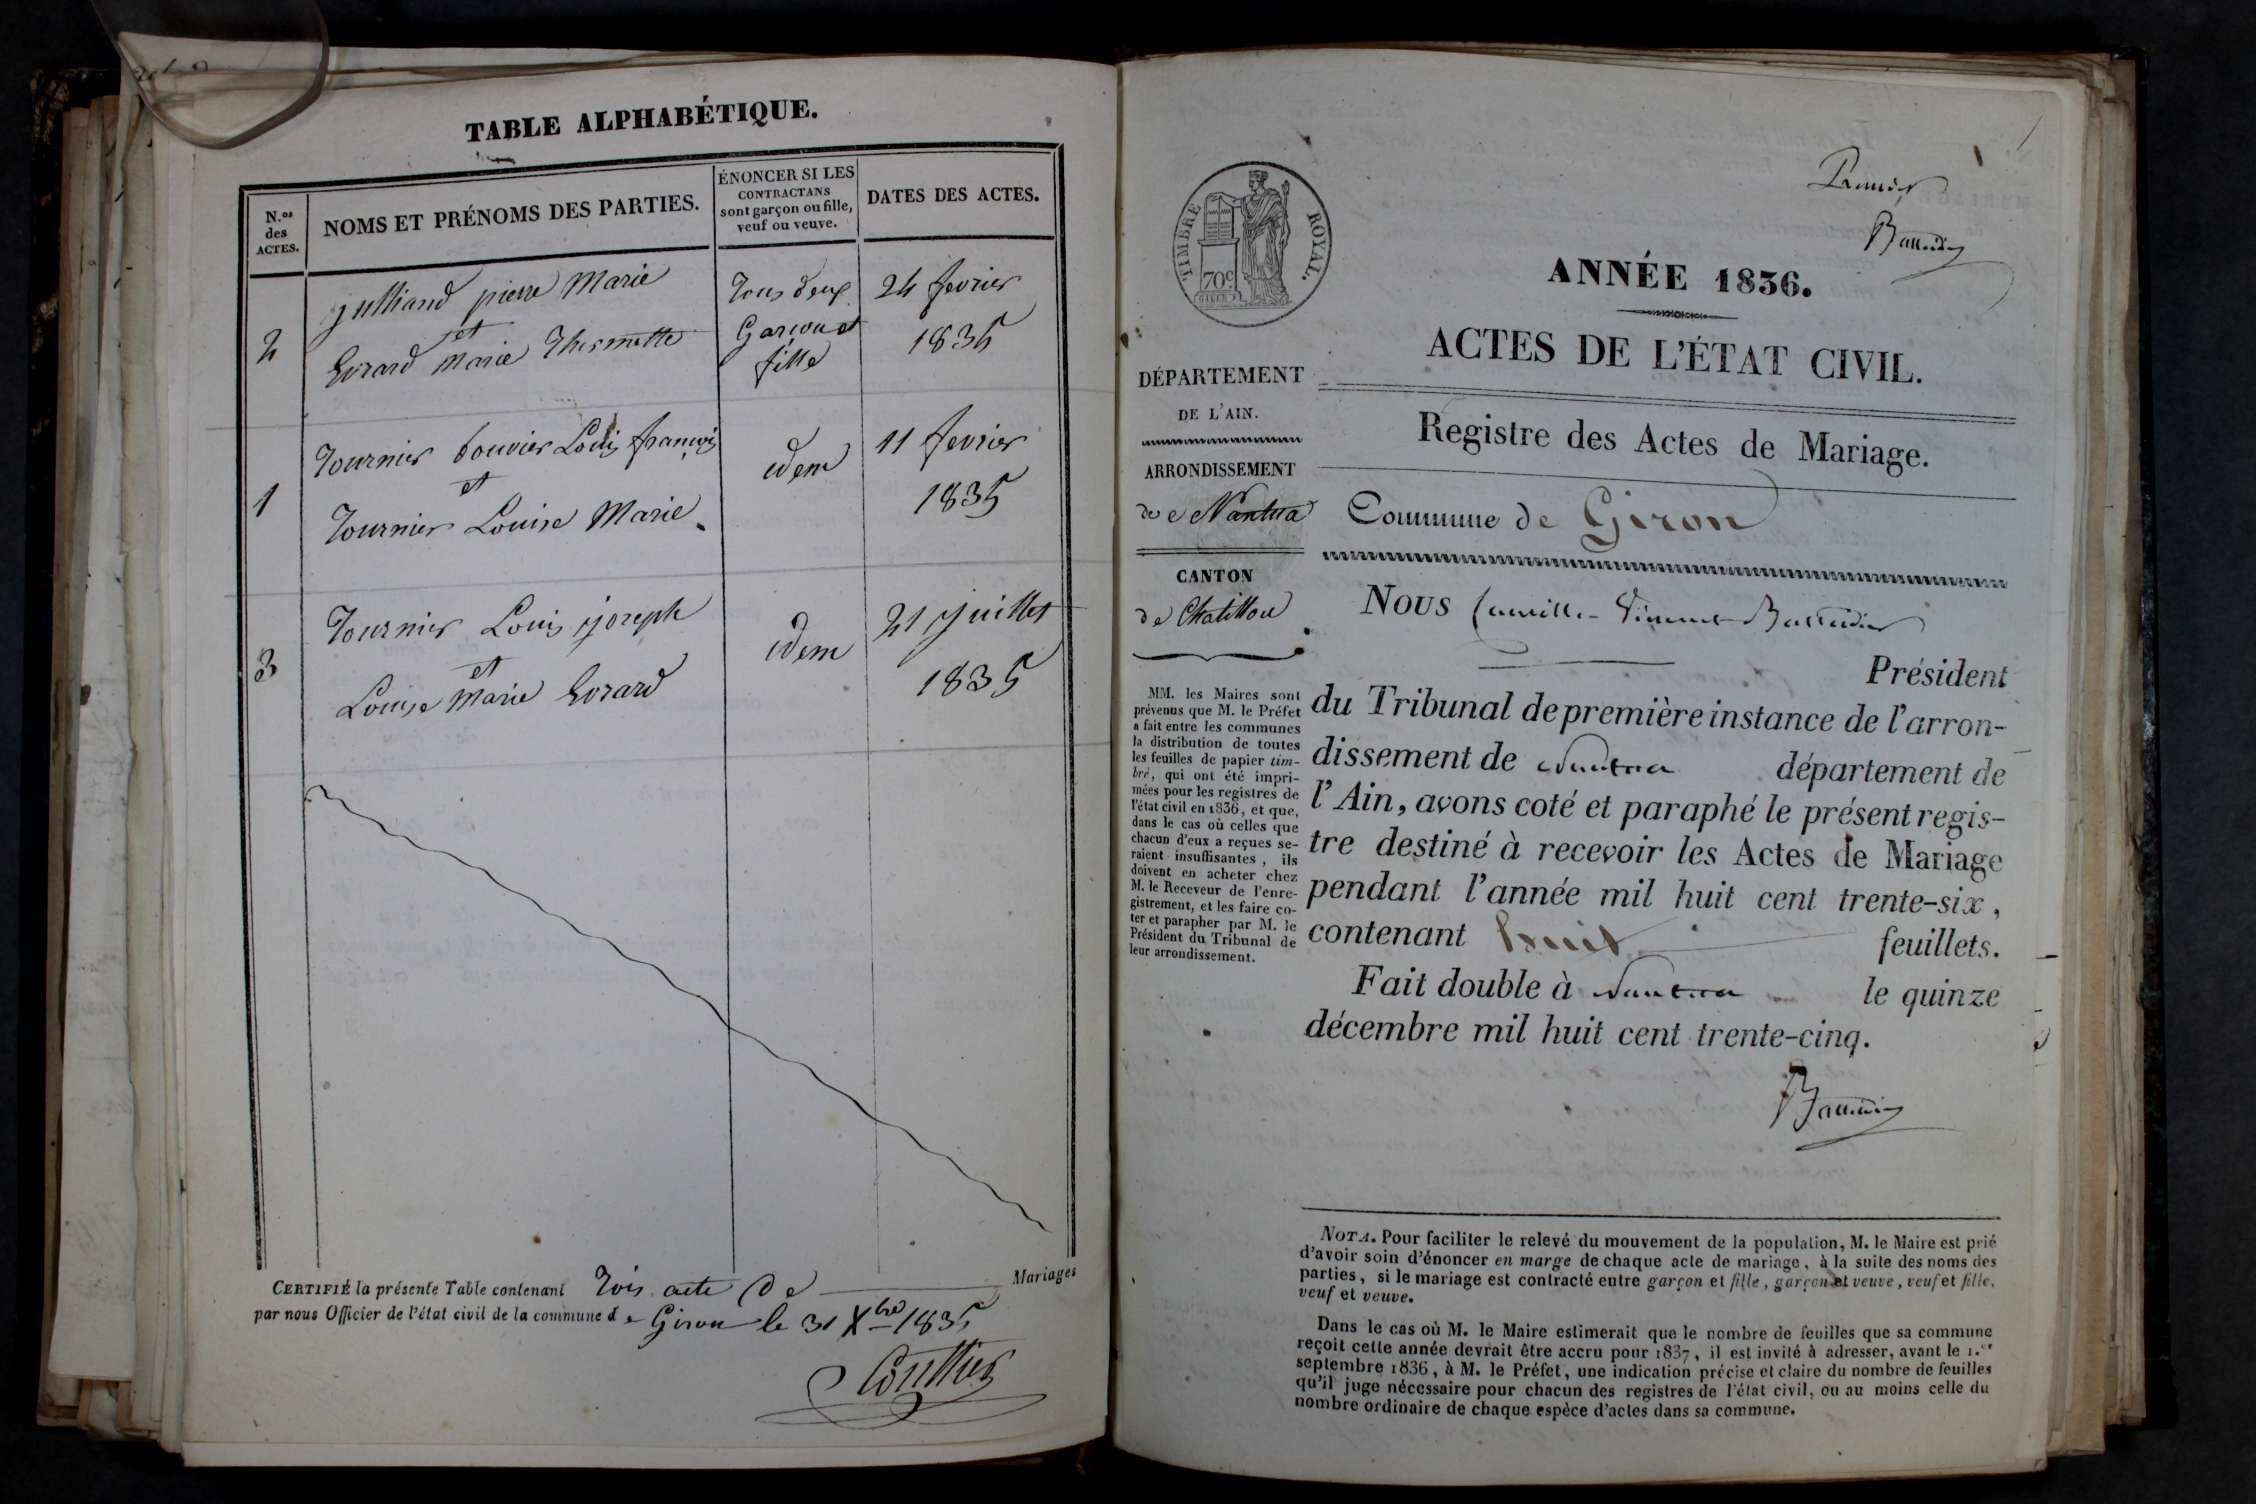 TABLE ALPHABÉTIQUE.
N.os des ACTES.
NOMS ET PRÉNOMS DES PARTIES.
ÉNONCER SI LES
CONTRACTANS
sont garçon ou fille,
veuf ou veuve.
DATES DES ACTES.
2
Julliand pierre Marie
et
Evrard Marie
Tous deux
Garçon et
fille
24 fevrier
1835
1
Tournier bouvier Louis françois
et
Tournier Louise Marie
idem
11 fevrier
1835
3
Tournier Louis joseph
et
Louise Marie Evrard
idem
21 Juillet
1835
CERTIFIÉ la présente Table contenant Trois acte De Mariages
par nous Officier de l'état civil de la commune de Giron le 31 Xbre 1835
Premier
TIMBRE ROYAL.
70c
ANNÉE 1836.
ACTES DE L'ÉTAT CIVIL.
Registre des Actes de Mariage.
Commune de Giron
DÉPARTEMENT
DE L'AIN.
ARRONDISSEMENT
de Nantua
CANTON
de Chatillon
MM. les Maires sont
prévenus que M. le Préfet
a fait entre les communes
la distribution de toutes
les feuilles de papier tim-
bré, qui ont été impri-
mées pour les registres de
l'état civil en 1836, et que,
dans le cas où celles que
chacun d'eux a reçues se-
raient insuffisantes, ils
doivent en acheter chez
M. le Receveur de l'enre-
gistrement, et les faire co-
ter et parapher par M. le
Président du Tribunal de
leur arrondissement.
NOUS Camille Vincent
Président
du Tribunal de première instance de l'arron-
dissement de Nantua département de
l'Ain, avons coté et paraphé le présent regis-
tre destiné à recevoir les Actes de Mariage
pendant l'année mil huit cent trente-six,
contenant huit feuillets.
Fait double à Nantua le quinze
décembre mil huit cent trente-cinq.
NOTA. Pour faciliter le relevé du mouvement de la population, M. le Maire est prié
d'avoir soin d'énoncer en marge de chaque acte de mariage, à la suite des noms des
parties, si le mariage est contracté entre garçon et fille, garçon et veuve, veuf et fille,
veuf et veuve.
Dans le cas où M. le Maire estimerait que le nombre de feuilles que sa commune
reçoit cette année devrait être accru pour 1837, il est invité à adresser, avant le 1.er
septembre 1836, à M. le Préfet, une indication précise et claire du nombre de feuilles
qu'il juge nécessaire pour chacun des registres de l'état civil, ou au moins celle du
nombre ordinaire de chaque espèce d'actes dans sa commune.